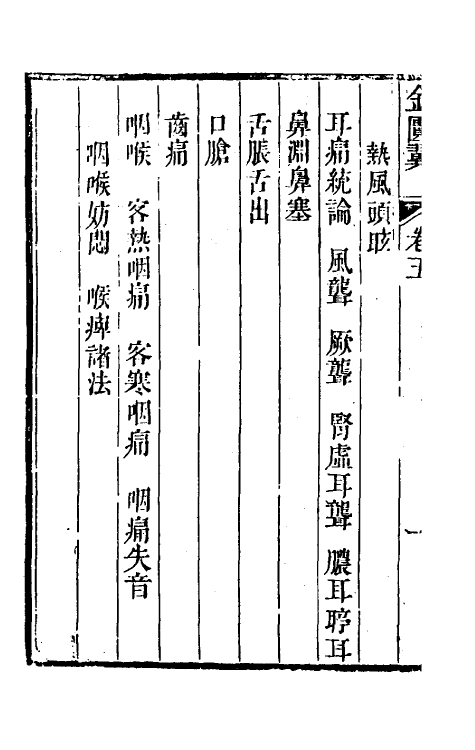 金匱翼 卷五
熱風頭眩
耳病統論 風聾 厥聾 腎虛耳聾 膿耳聤耳
鼻淵鼻塞
舌脹舌出
口瘡
齒痛
咽喉 客熱咽痛 客寒咽痛 咽痛失音
咽喉妨悶 喉痺諸法